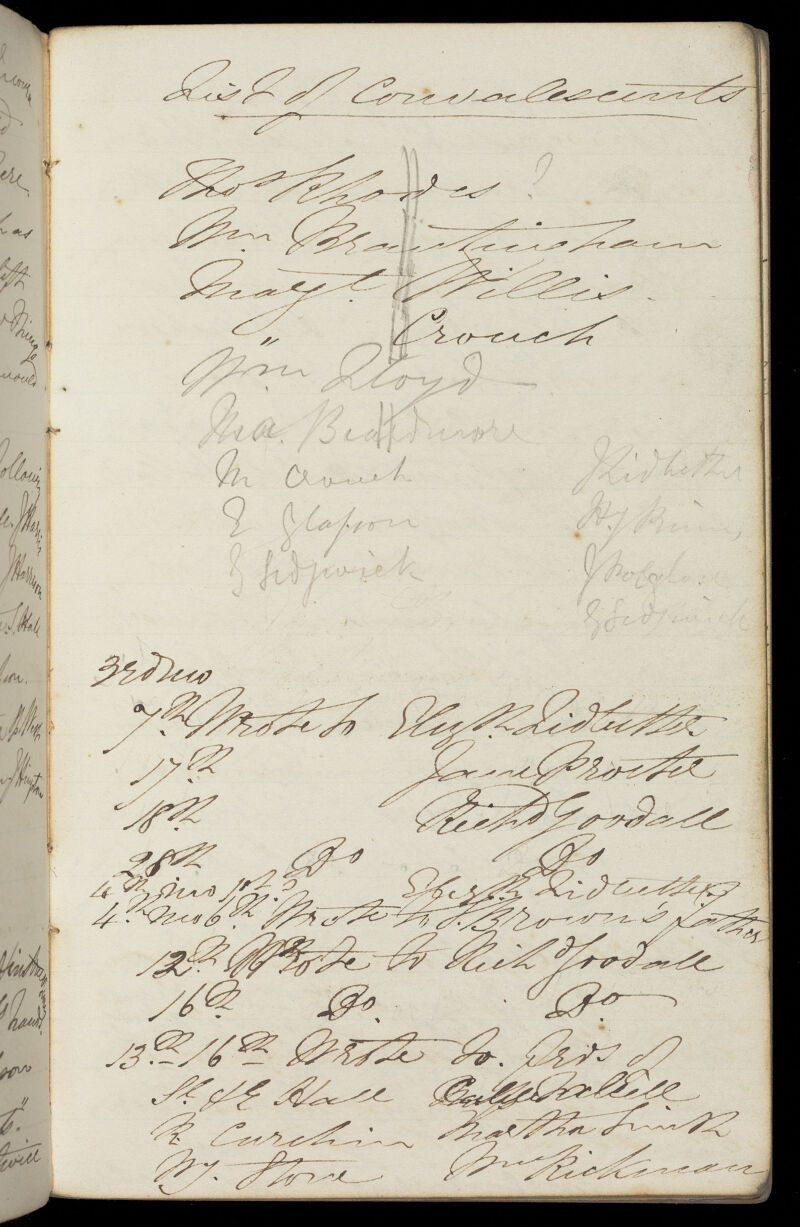 List of Convalescents
Thos Rhodes ?
Wm Brantingham
Magt. Willis.
" Crouch
Wm Lloyd
Beardmore
M Crouch
E Glasson
E Sedgwick
J Lidbetter
E Sedgwick
3rd mo
7th. Wrote to Elizth. Lidbetter
17th Jane Procter
18th Richd Goodall
28th Do Do
4th mo 1st. Do Elizth Lidbetter
4th. mo 6th. Wrote to J. Brown's father
12th. Wrote to Richd Goodall
16th. Do. Do
13th 16th Wrote to. frds of
St. & E Hall
R Curchin Martha Smith
W. J. Stone Wm Rickman